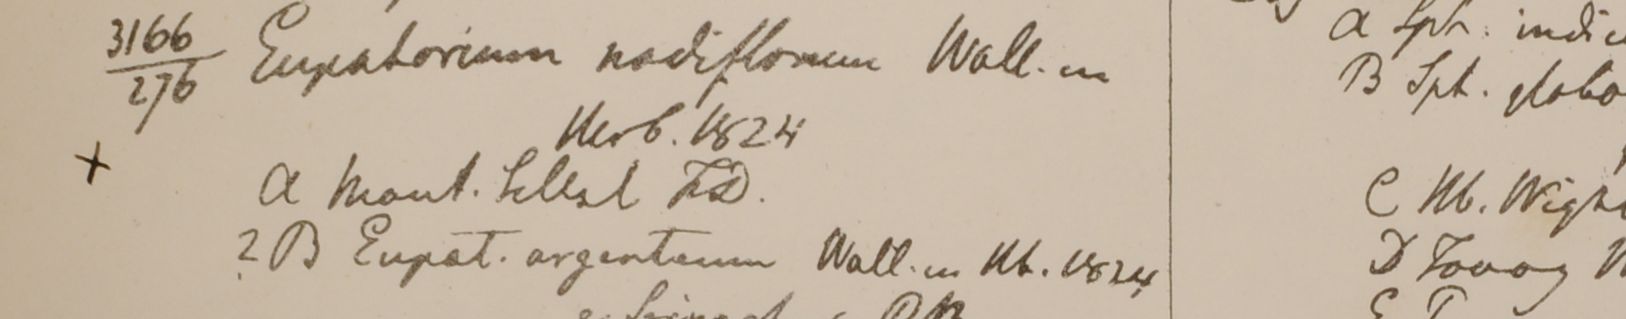 3166
276
Eupatorium nodiflorum Wall. in
Herb. 1824
+
a Mont. Sillet FD.
? B Eupat. argenteum Wall. in Hb. 1824
a Sph. indic
B Sph. globo
C Hb. Wight
D Tavoy